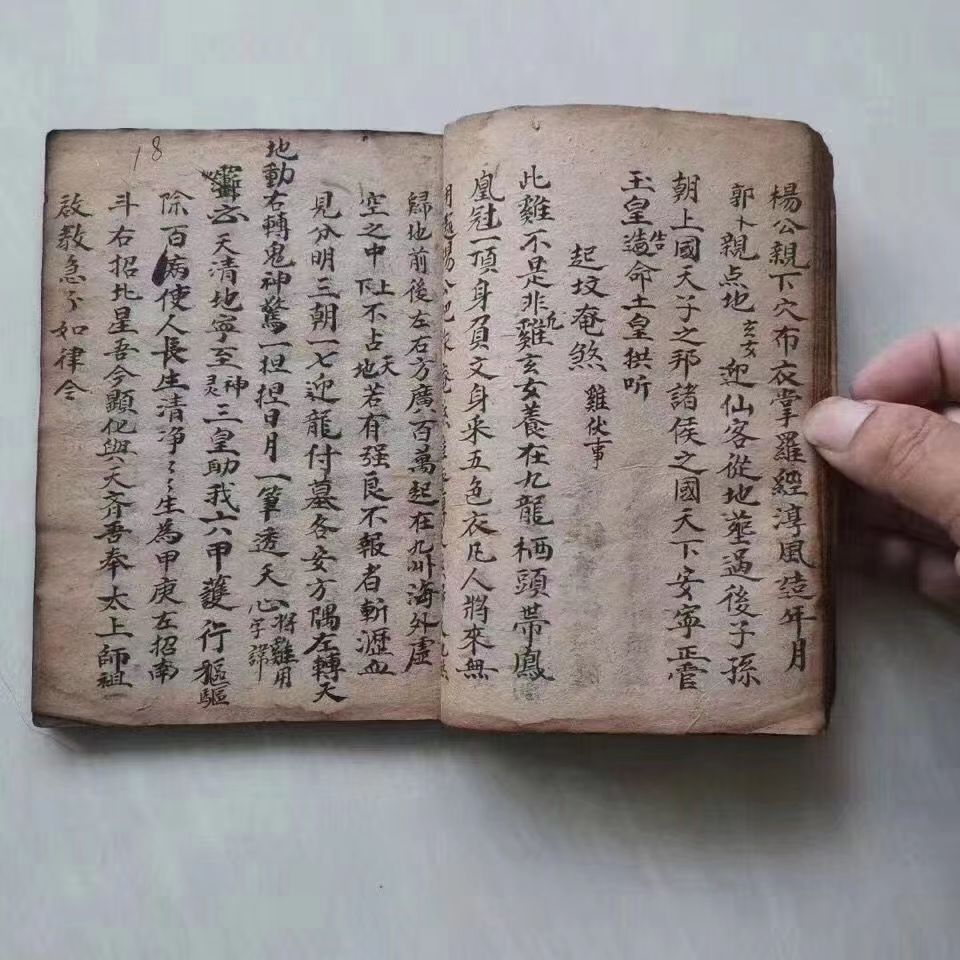 楊公親下穴布衣掌羅經淳風造年月
郭卜親点地玄女起仙客從地葬過後子孫
朝上國天子之邦諸侯之國天下安寧正管
玉皇造告命土皇拱听
起坟奄煞 雞伏事
此雞不是非凡雞玄女養在九龍栖頭帯鳳
凰冠一頂身負文身来五色衣凡人將來無
歸地前後左右方廣百萬起在九州海外虛
空之中上下不占天地若有强良不報者斬瀝血
見分明三朝一七迎龍付墓各安方隅左轉天
地動右轉鬼神驚一担担日月一筆透天心将雞用字諱
云天清地寧至神灵三皇助我六甲護行驅
除百病使人長生清净〻〻生為甲庚左招南
斗右招北星吾今顯化與天齐吾奉太上師祖
啟教急〻如律令
18